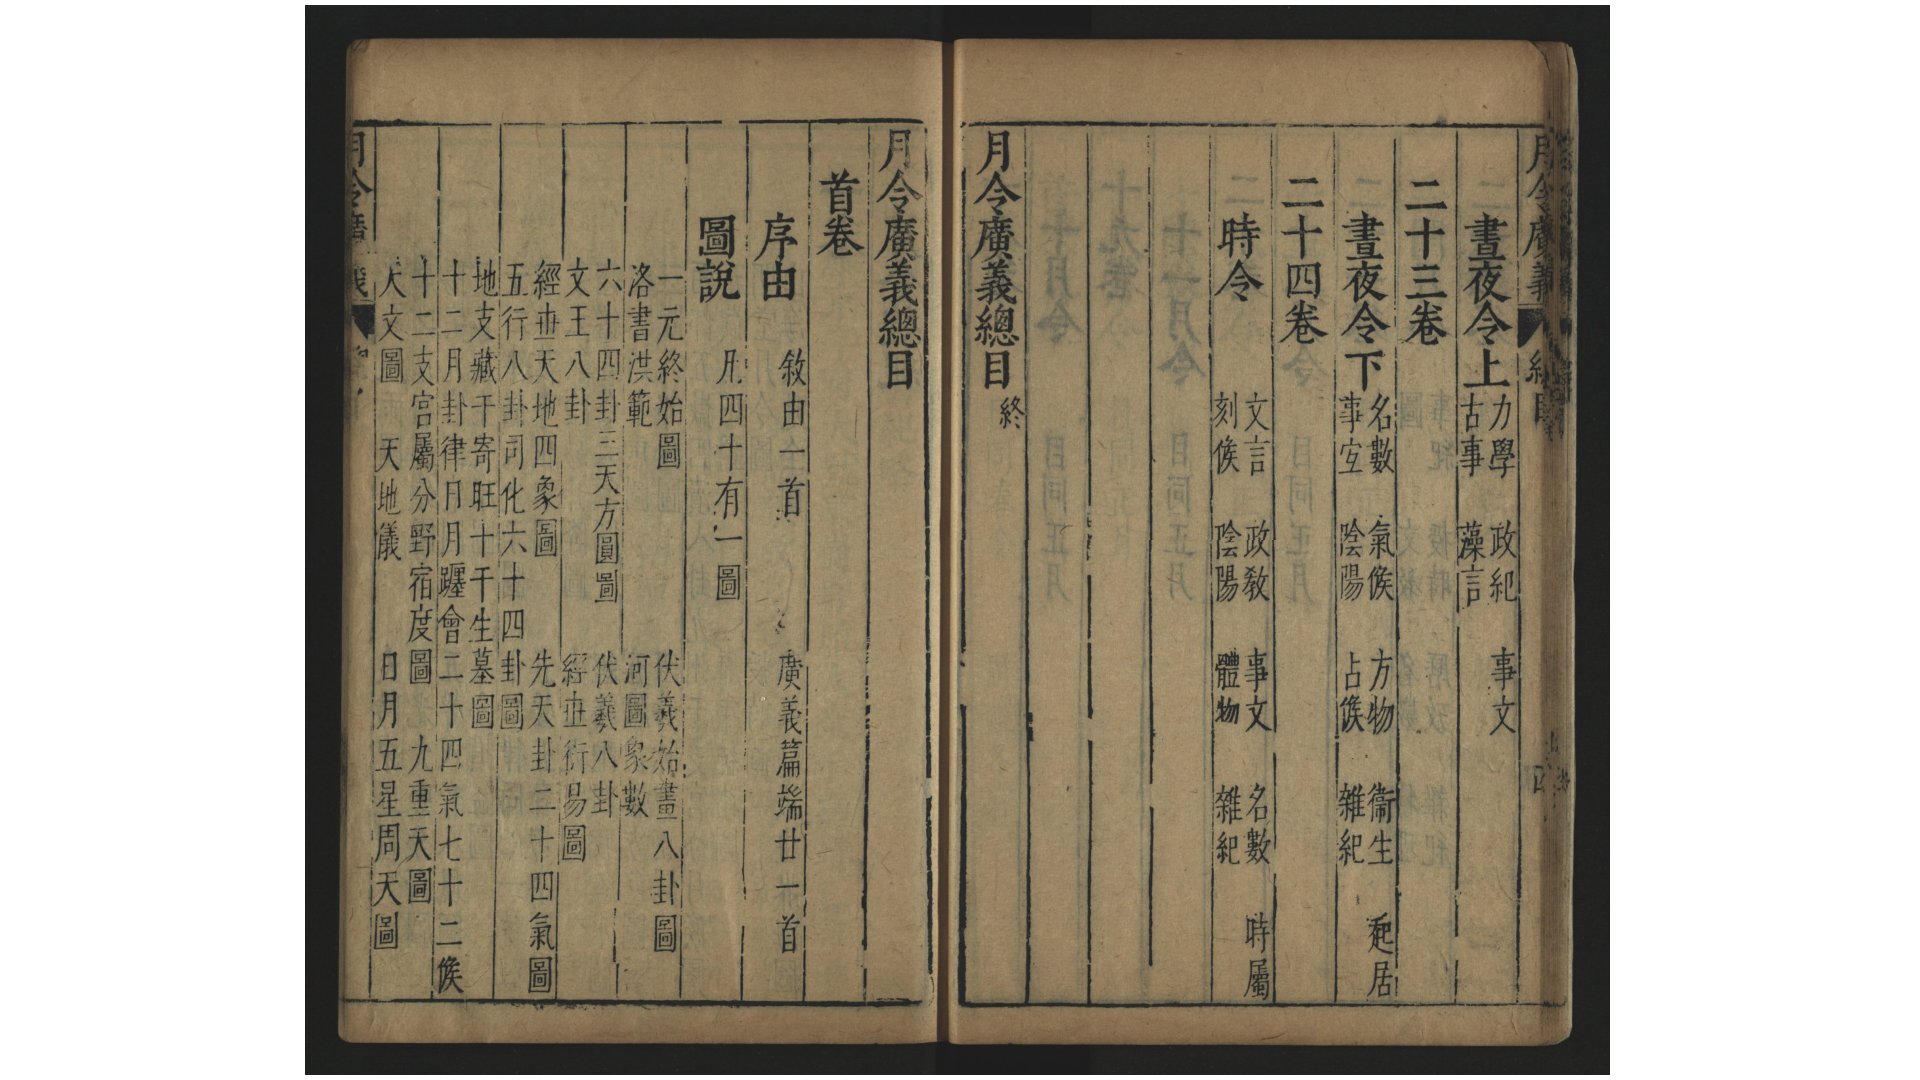 月令廣義 總目
晝夜令上 力學 政紀 事文
古事 藻言
二十三卷
晝夜令下 名數 氣候 方物 衞生 起居
事宜 陰陽 占候 雜紀
二十四卷
時令 文言 政教 事文 名數 時屬
刻候 陰陽 體物 雜紀
月令廣義總目終
月令廣義總目
首卷
序由 敘由一首 廣義篇端廿一首
圖說 凡四十有一圖
一元終始圖 伏羲始畫八卦圖
洛書洪範 河圖象數
六十四卦三天方圓圖 伏羲八卦
文王八卦 經世衍易圖
經世天地四象圖 先天卦二十四氣圖
五行八卦司化六十四卦圖
地支藏干寄旺十干生墓圖
十二月卦律日月躔會二十四氣七十二候
十二支宮屬分野宿度圖 九重天圖
天文圖 天地儀 日月五星周天圖
月令廣義